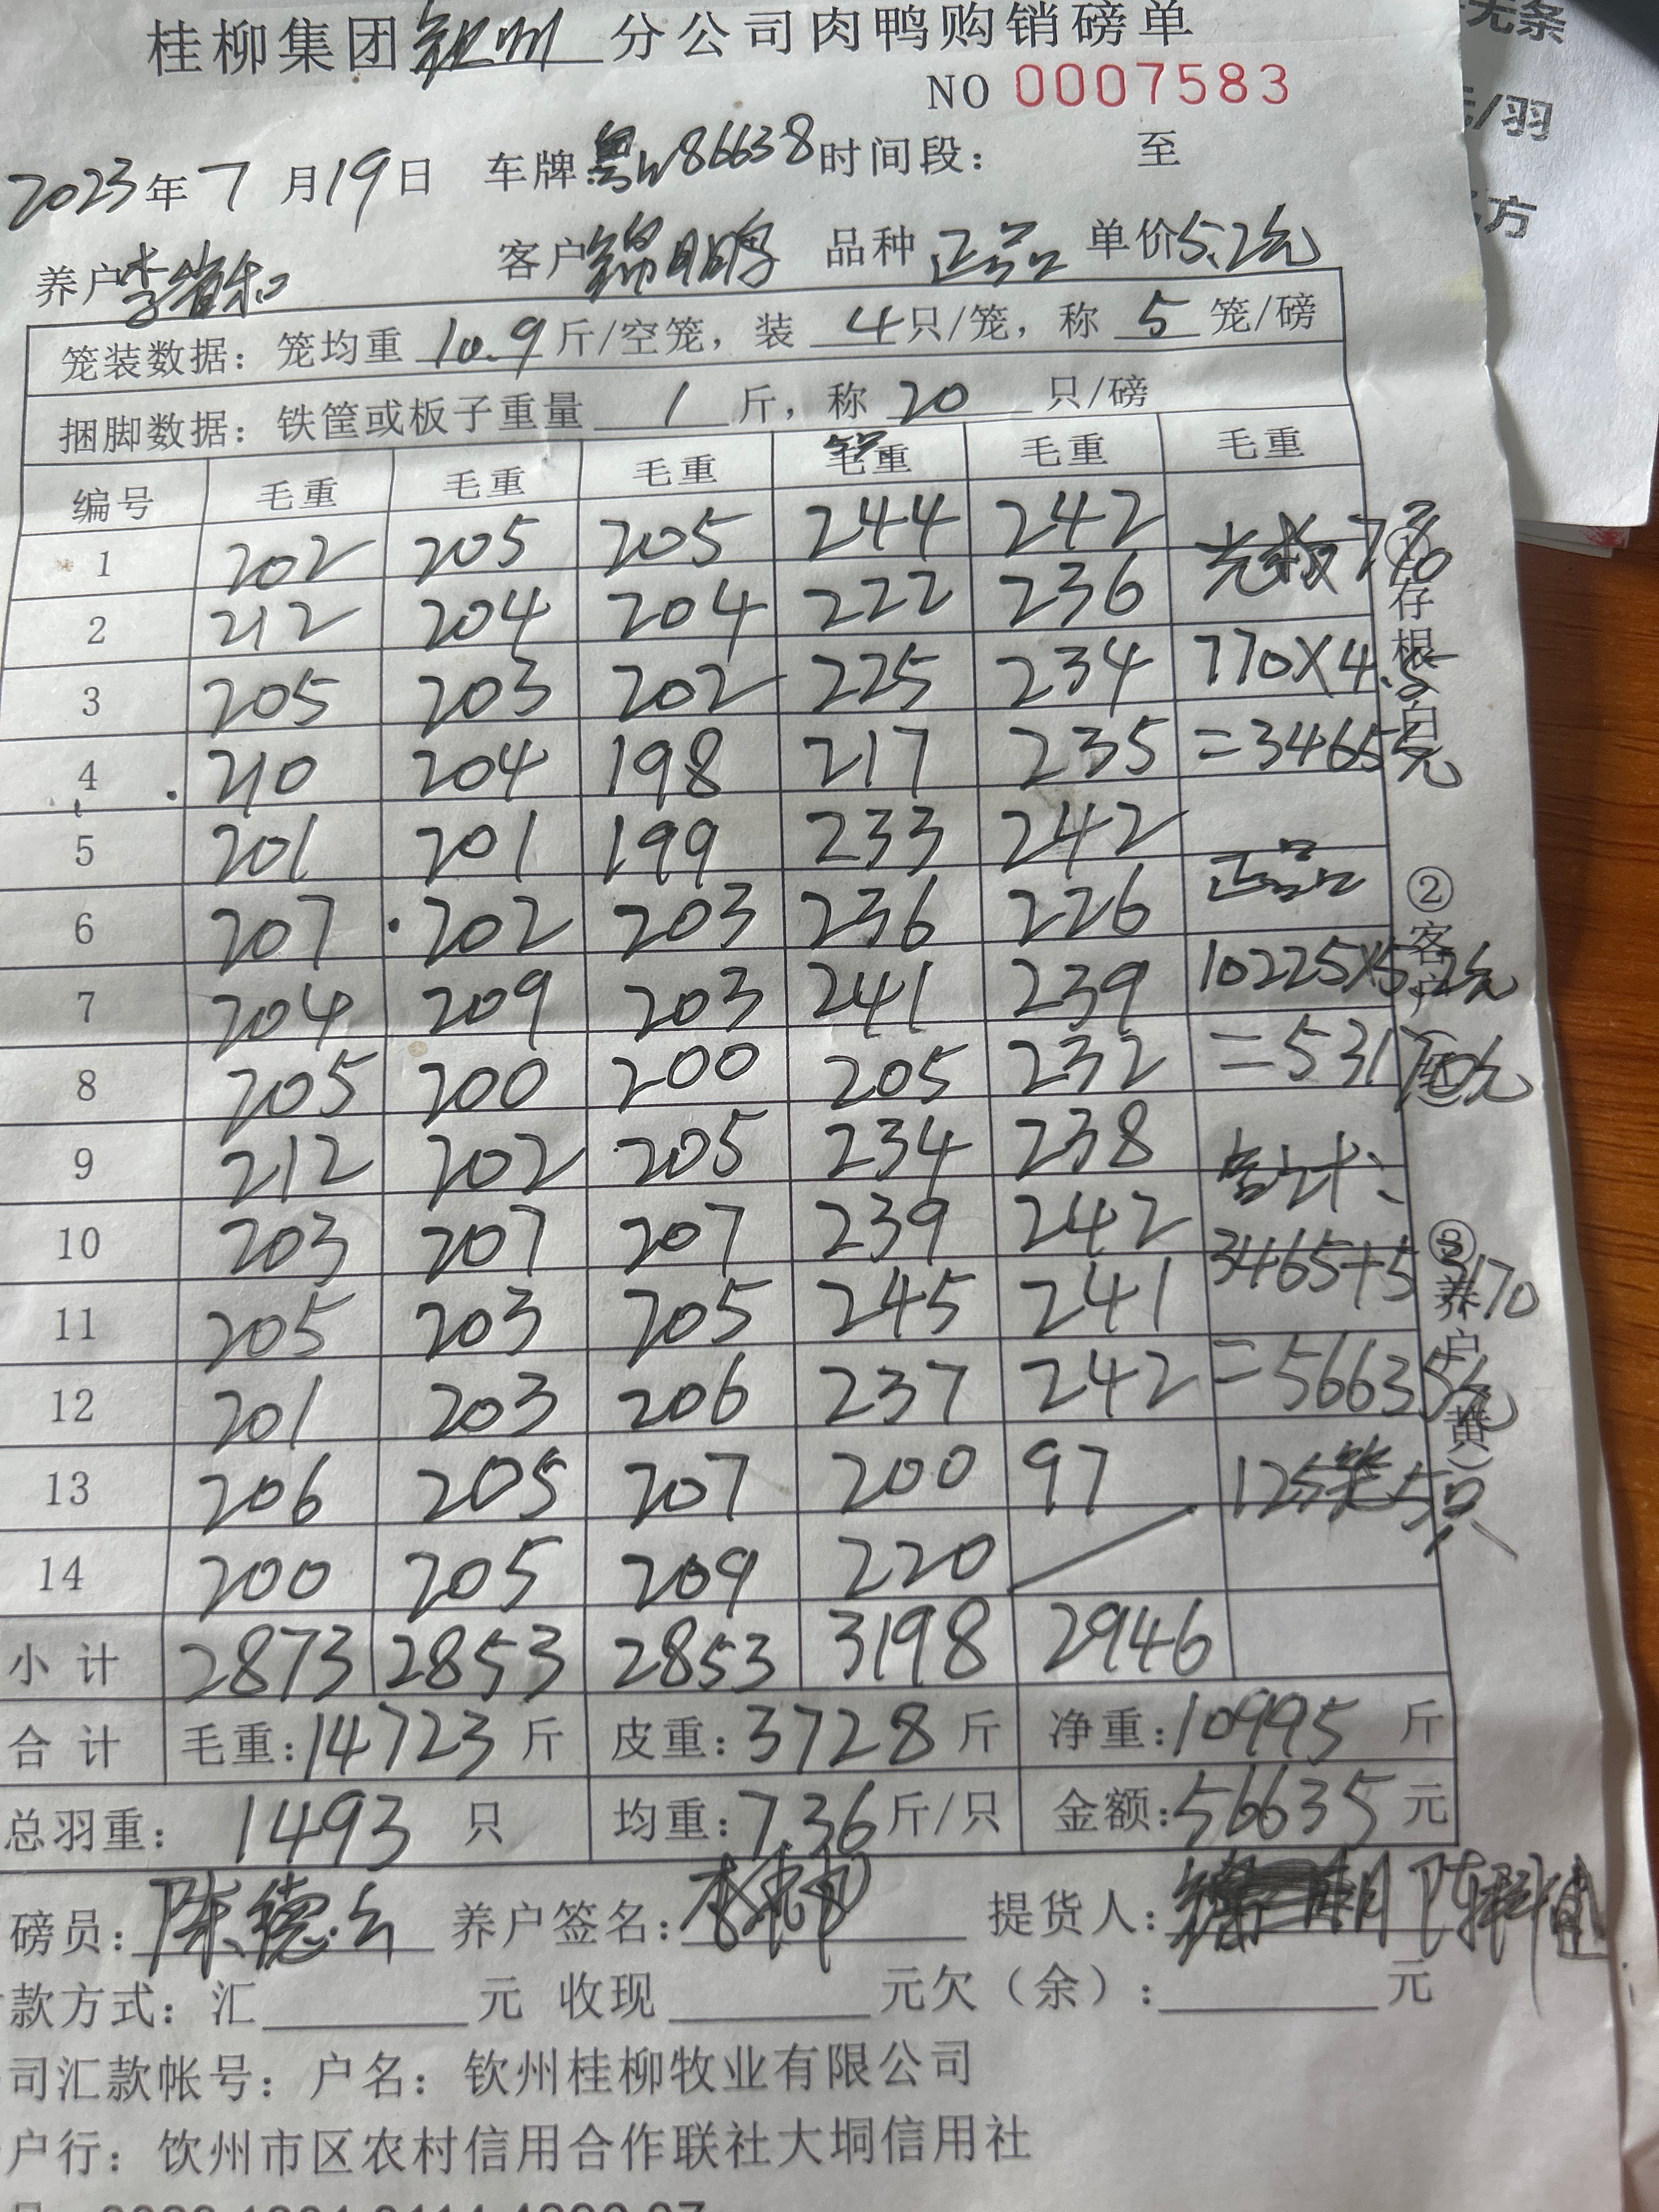 桂柳集团钦州分公司肉鸭购销磅单
NO 0007583
2023年7月19日 车牌粤W86638时间段: 至
养户李 和 客户锦明鹏 品种 正品 单价5.2元
笼装数据: 笼均重 10.9 斤/空笼, 装 4只/笼, 称 5 笼/磅
捆脚数据: 铁筐或板子重量 1 斤, 称 20 只/磅
编号 毛重 毛重 毛重 毛重 毛重 毛重
1 202 205 205 244 242
2 212 204 204 222 236
3 205 203 202 225 234 770X4.5
4 210 204 198 217 235 =3465元
5 201 201 199 233 242
6 207 202 203 236 226 正品
7 204 209 203 241 239 10225X5.2元
8 205 200 200 205 232 =53170元
9 212 202 205 234 238 合计:
10 203 207 207 239 242 3465+53170
11 205 203 205 245 241
12 201 203 206 237 242 =56635元
13 206 205 207 200 97 125笼5只
14 200 205 209 220
小计 2873 2853 2853 3198 2946
合计 毛重:14723斤 皮重:3728斤 净重:10995斤
总羽重: 1493 只 均重:7.36斤/只 金额:56635元
磅员: 陈德云 养户签名: 提货人:
款方式: 汇 元 收现 元欠(余): 元
司汇款帐号: 户名: 钦州桂柳牧业有限公司
户行: 钦州市区农村信用合作联社大垌信用社
存根
②客户
③养户 黄)
无条
元/羽
方